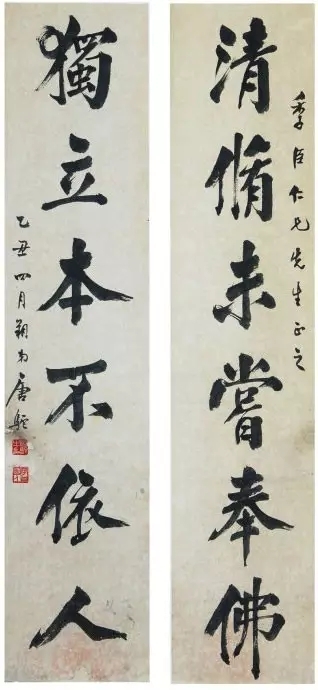 季臣仁兄先生正之
清脩未嘗奉佛
獨立本不依人
乙丑四月朔弟唐駝